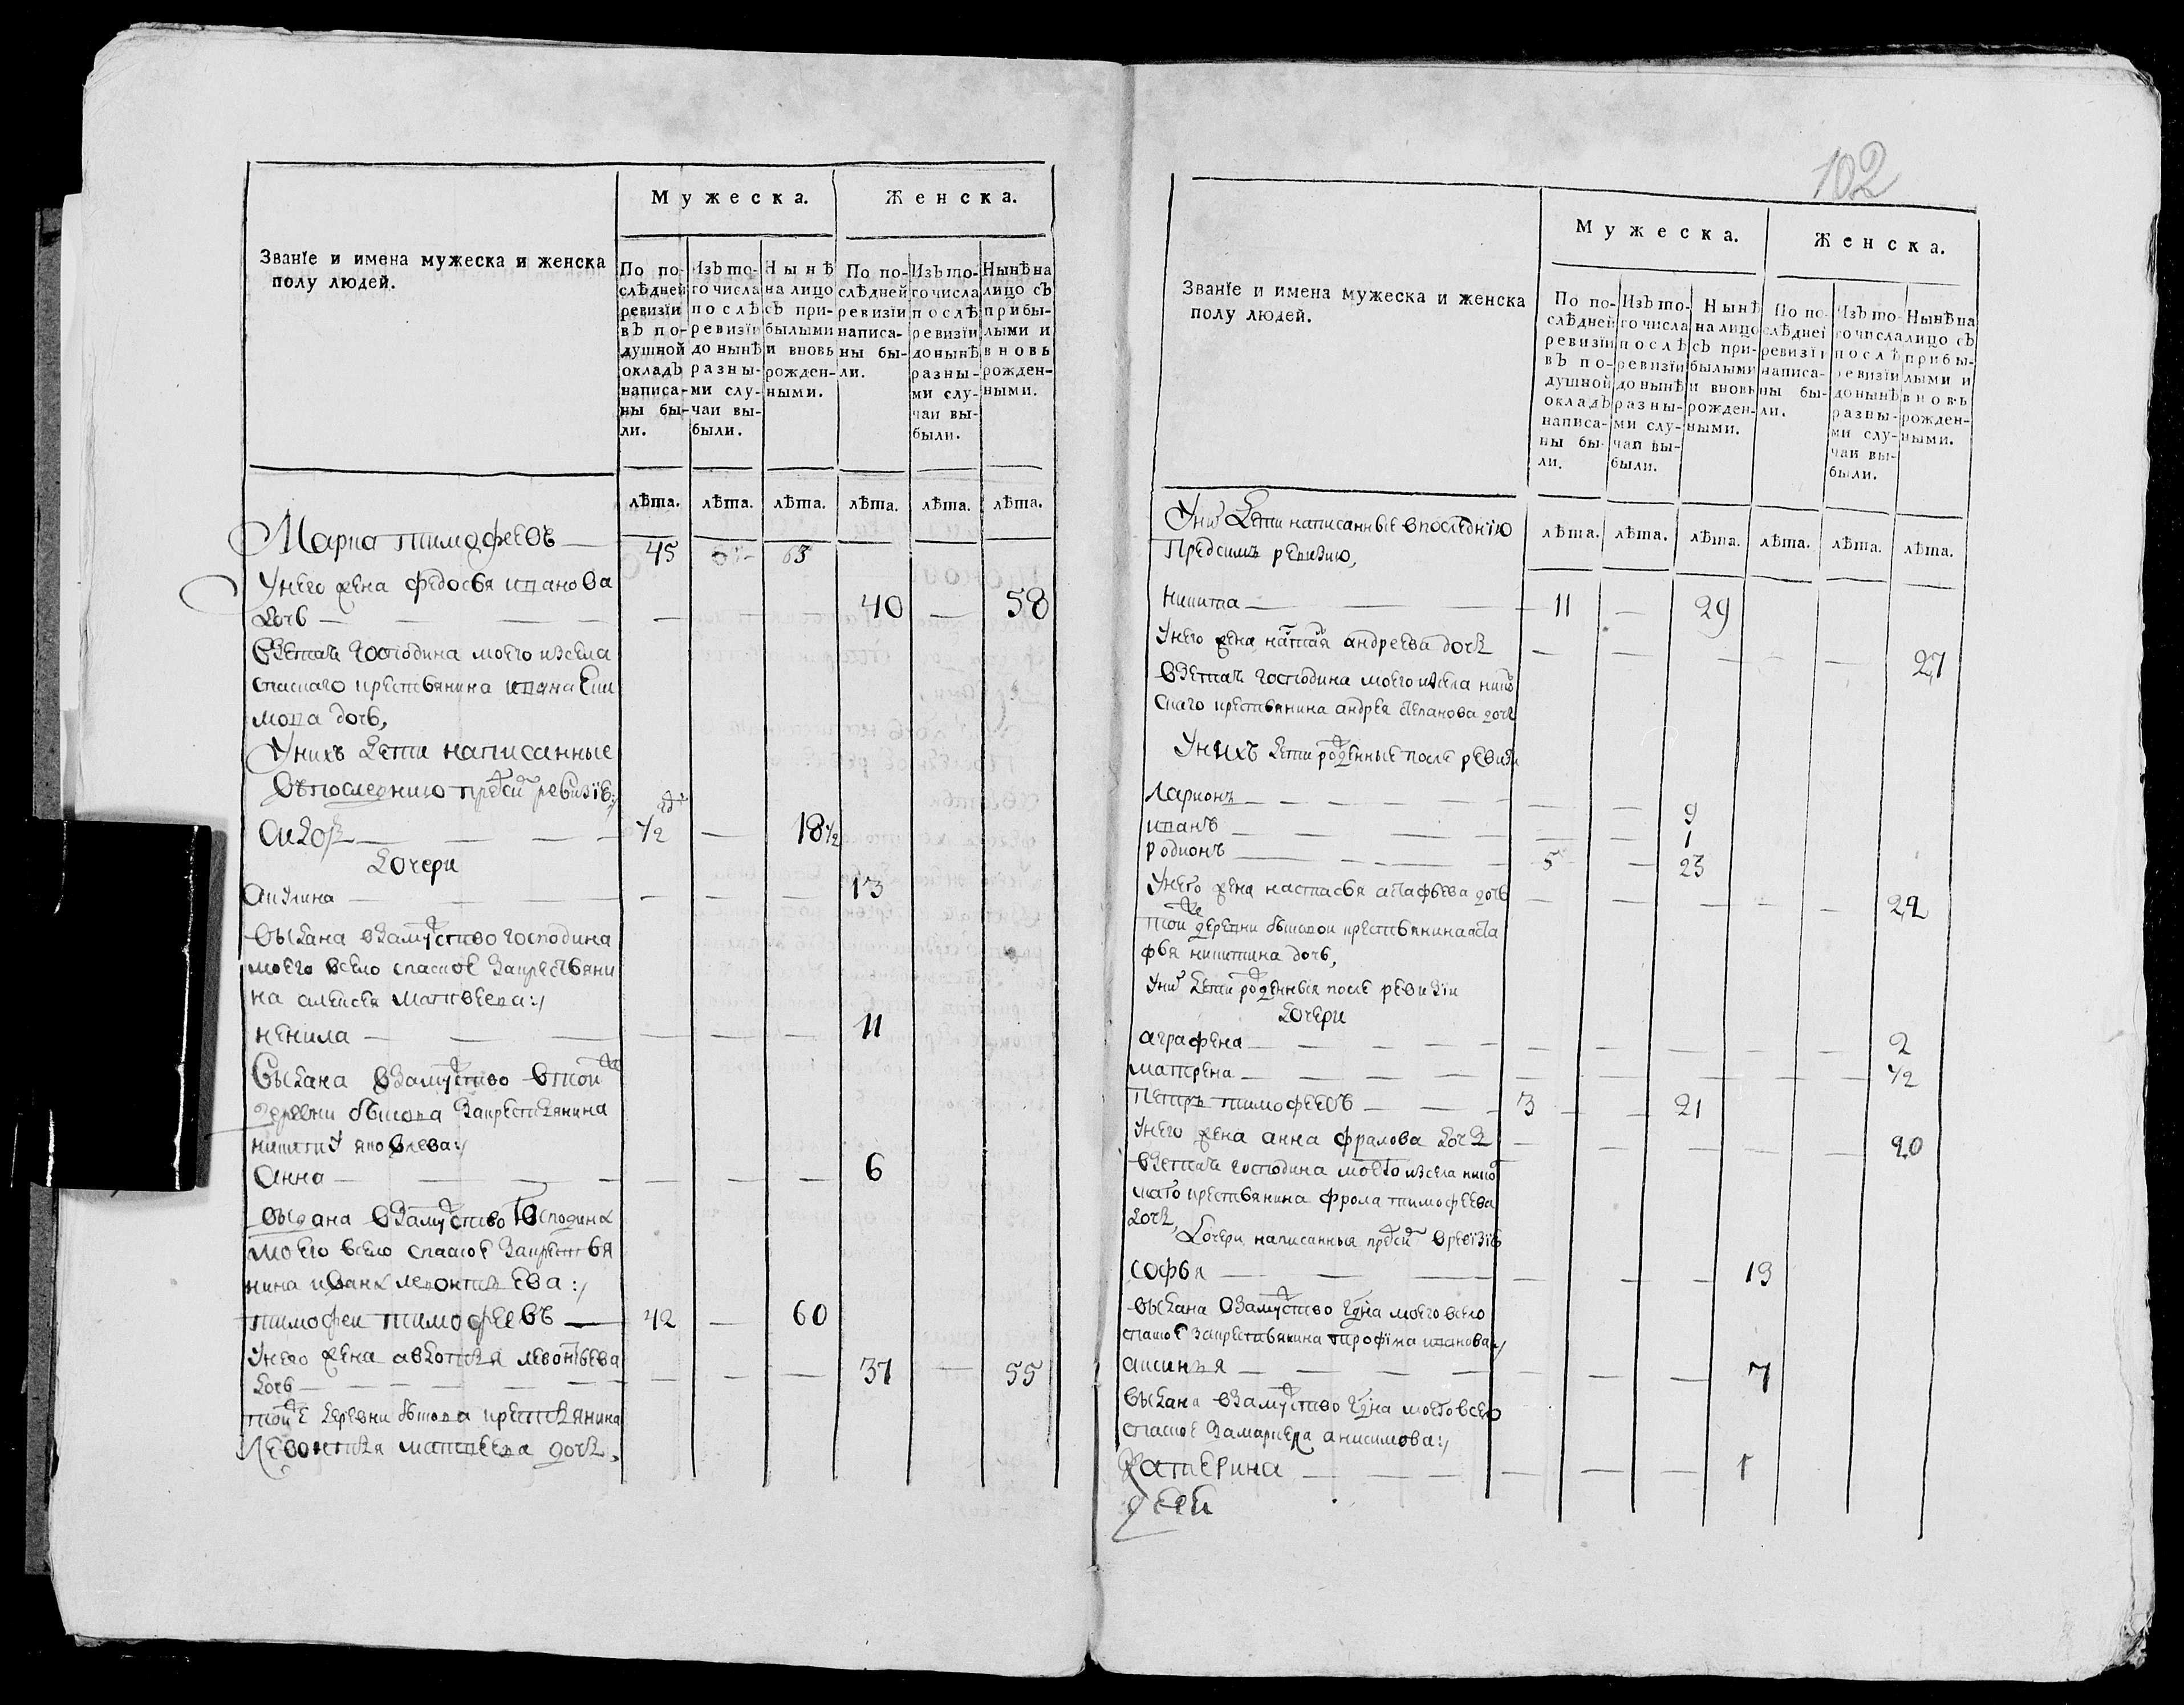 Званїе и имена мужеска и женска
полу людей.
Мужеска.
Женска.
По по-
слѣдней
ревизїи
въ по-
душной
окладъ
написа-
ны бы-
ли.
Изъ то-
го числа
послѣ
ревизїи
до нынѣ
разны-
ми слу-
чаи вы-
были.
Нынѣ
на лицо
съ при-
былыми
и вновь
рожден-
ными.
По по-
слѣдней
ревизїи
написа-
ны бы-
ли.
Изъ то-
го числа
послѣ
ревизїи
до нынѣ
разны-
ми слу-
чаи вы-
были.
Нынѣ на
лицо съ
прибы-
лыми и
вновь
рожден-
ными.
лѣта. лѣта. лѣта. лѣта. лѣта. лѣта.
тимофеевъ — 45 63
Унего жена федосья иванова
дочь — 40 — 58
взетая господина моего изсела
спаскаго крестьянина ивана
дочь,
Унихъ дети написанные
въпоследнюю ревизїю:/
1/2 — 18 1/2
дочери
акулина — 13
выдана взамуство господина
моего всело спаское закрестьяни
на алексея матвеева:/
ненила — 11
выдана взамуство втой же
деревни закрестьянина
никиту яковлева:/
анна — 6
выдана взамуство господина
моего всело спаское закрестья
нина ивана леонтьева:/
тимофеи тимофеевъ — 42 — 60
Унего жена авдотья левонтьева
дочь — 37 — 55
тойже деревни крестьянина
левонтья матвеева дочь.
102
Званїе и имена мужеска и женска
полу людей.
Мужеска.
Женска.
По по-
слѣдней
ревизїи
въ по-
душной
окладъ
написа-
ны бы-
ли.
Изъ то-
го числа
послѣ
ревизїи
до нынѣ
разны-
ми слу-
чаи вы-
были.
Нынѣ
на лицо
съ при-
былыми
и вновь
рожден-
ными.
По по-
слѣдней
ревизїи
написа-
ны бы-
ли.
Изъ то-
го числа
послѣ
ревизїи
до нынѣ
разны-
ми слу-
чаи вы-
были.
Нынѣ на
лицо съ
прибы-
лыми и
вновь
рожден-
ными.
лѣта. лѣта. лѣта. лѣта. лѣта. лѣта.
Унихъ дети написанные впоследнїю
Предсимъ ревизию,
никита — 11 — 29
Унего жена наталья андреева дочь — 27
взетая господина моего изсела
крестьянина андрея степанова дочь
Унихъ дети рожденные после ревизи
Ларионъ — 9
иванъ — 1
родионъ — 5 — 23
Унего жена настасья астафьева дочь — 22
той же деревни крестьянина аста
фья никитина дочь,
Унихъ дети рожденныя после ревизїи
дочери
аграфена — 2
матрена — 1/2
Петръ тимофеевъ — 3 — 21
Унего жена анна фралова дочь — 20
взетая господина моего изсела
крестьянина фрола тимофеева
дочь,
дочери написанныя
софья — 13
выдана взамуство моего всело
спаское закрестьянина трофїма иванова:/
аксинья — 7
выдана взамуство моего всело
спаское анисимова:/
катерина — 1